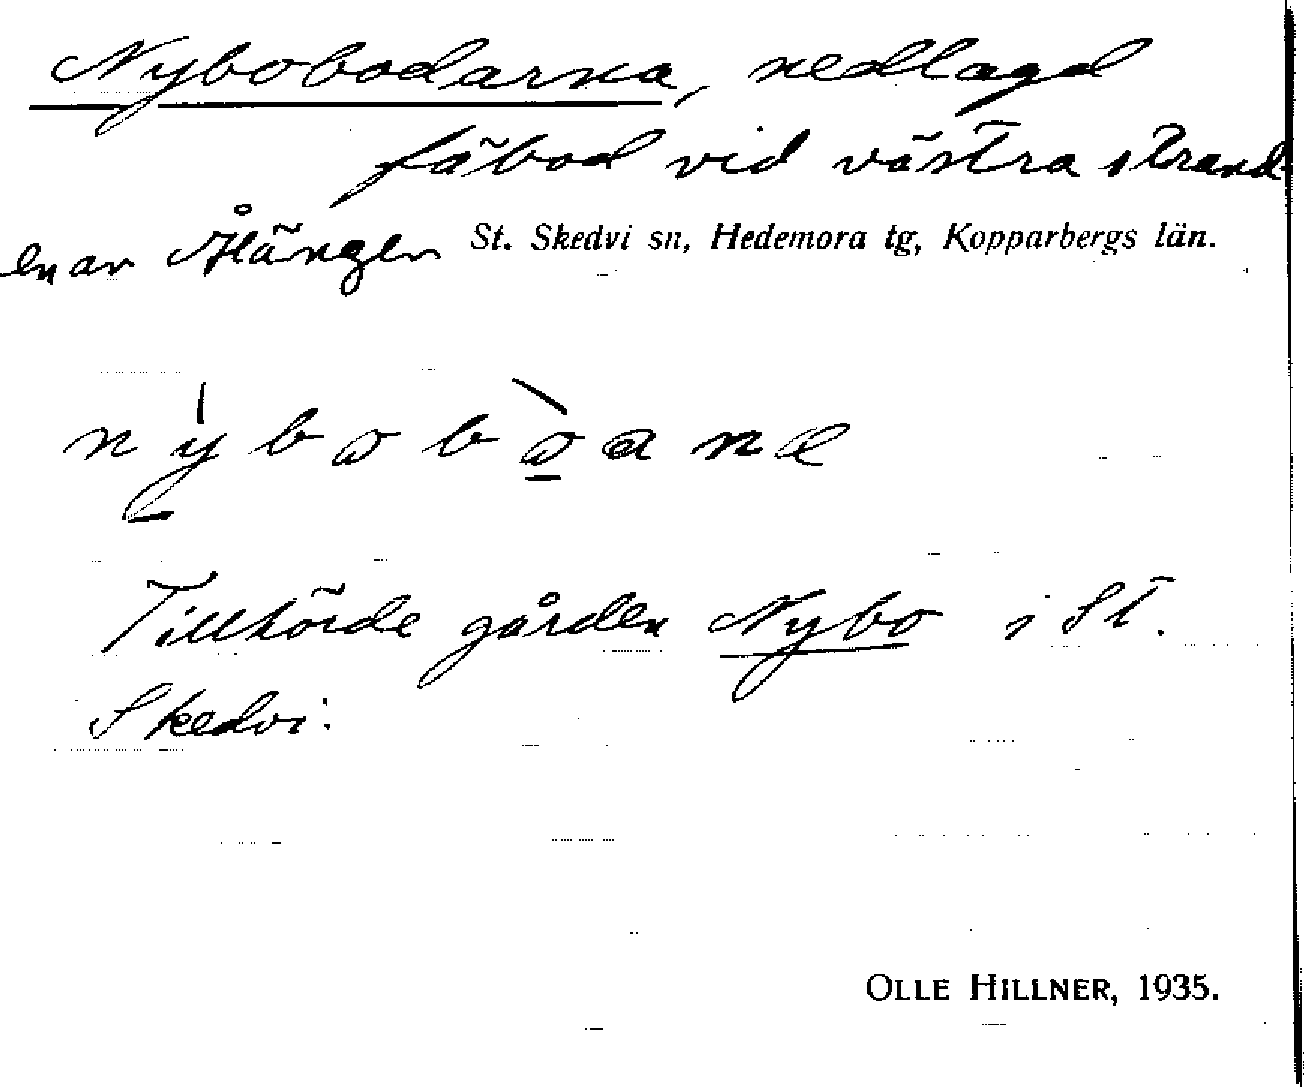 Nybobodarna, nedlagd
fäbod vid västra strand-
en av Ålängen St. Skedvi sn, Hedemora tg, Kopparbergs län.
Tillhörde gården Nybo i St.
Skedvi.
OLLE HILLNER, 1935.